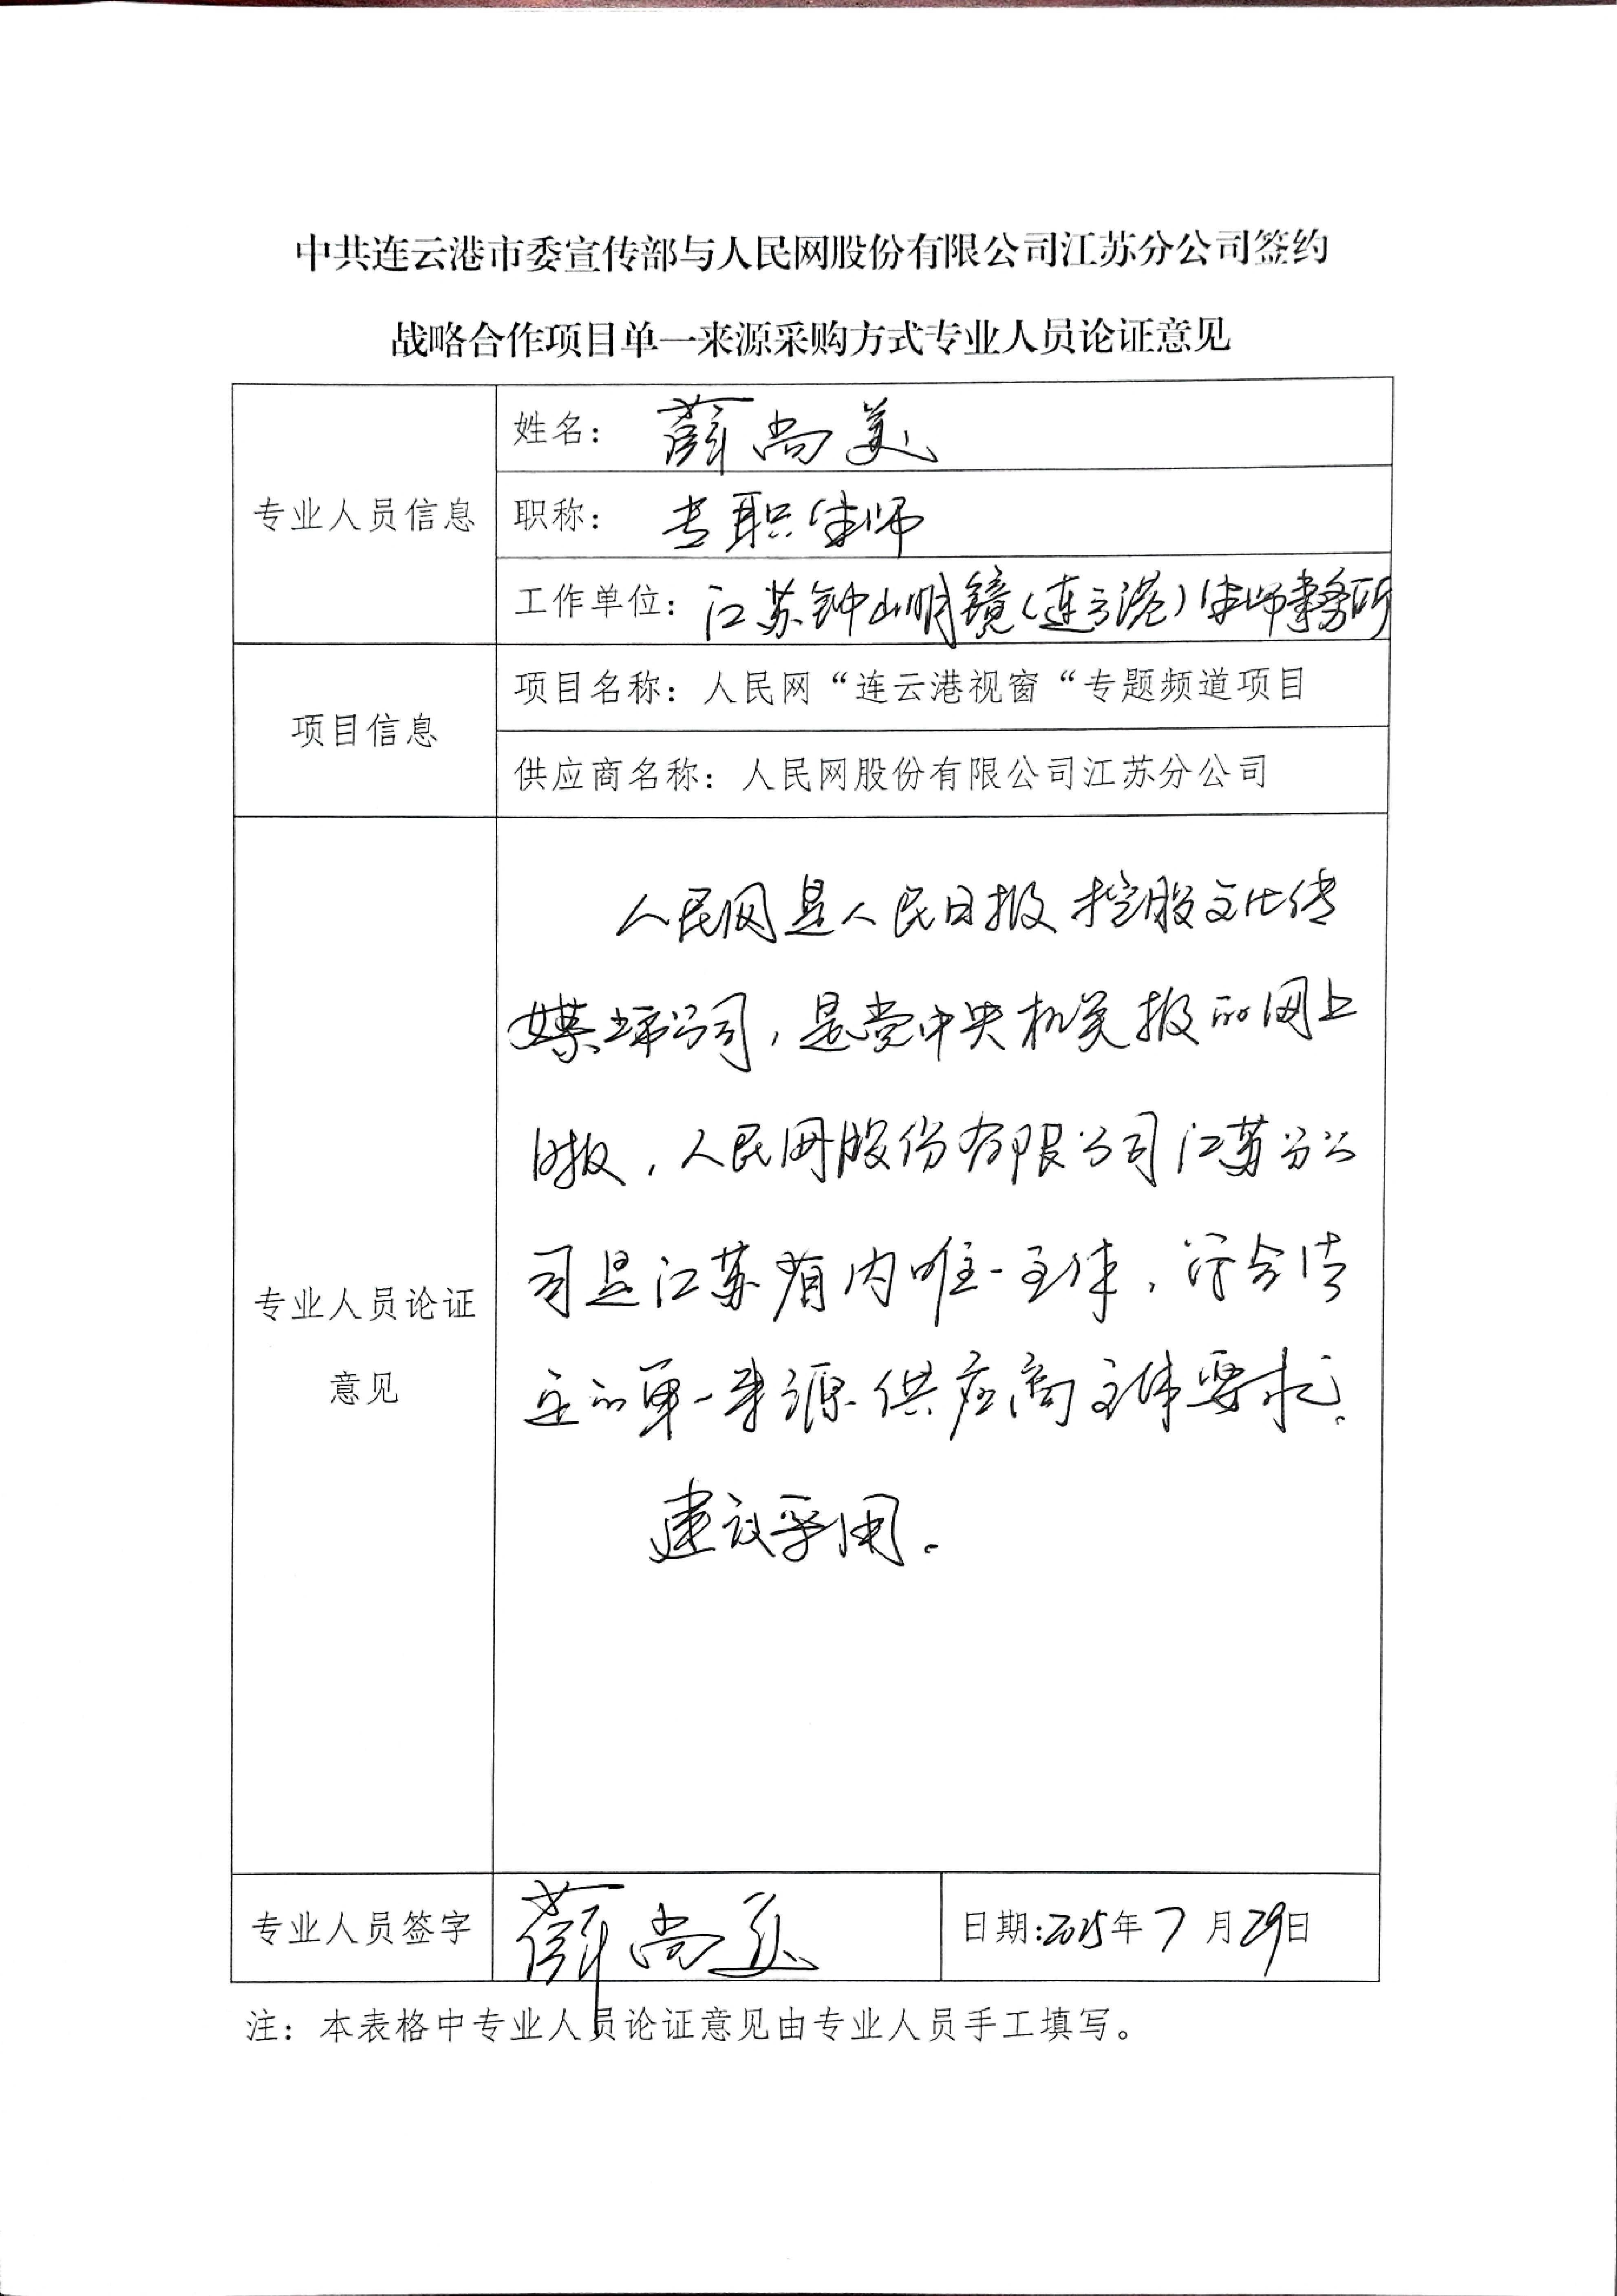 中共连云港市委宣传部与人民网股份有限公司江苏分公司签约
战略合作项目单一来源采购方式专业人员论证意见
专业人员信息
姓名：薛尚美
职称：专职律师
工作单位：江苏钟山明镜（连云港）律师事务所
项目信息
项目名称：人民网“连云港视窗“专题频道项目
供应商名称：人民网股份有限公司江苏分公司
专业人员论证
意见
人民网是人民日报控股文化传
媒上市公司，是党中央机关报的网上
日报，人民网股份有限公司江苏分公
司是江苏省内唯一主体，符合法
定的单一来源供应商主体要求。
建议采用。
专业人员签字
薛尚美
日期:2025年7月29日
注：本表格中专业人员论证意见由专业人员手工填写。